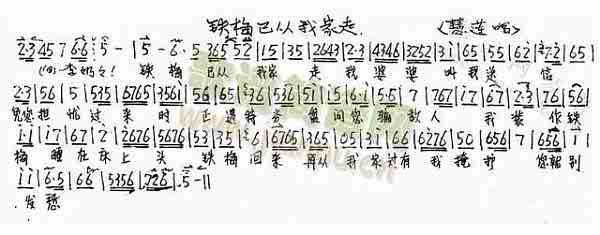 铁梅已从我家走
(慧莲唱)
2·3 45 7 6·6 5 - | 5 - 6 · 5 365 52 | 15 | 35 | 2643 | 2·3 | 4346 | 3252 | 3i | 65 | 55 | 62 | 7·2 | 65 |
(白:李奶奶!) 铁梅 已从 我家 走 我婆婆 叫我送 信
2·3 | 56 | 5 | 535 | 6765 | 3561 | 56 | 65 | 36 | 535 | 51 | i5 | 6·i | 5·5 | 7 | 767 | i7 | 67 | 2·3 | 76 | 56 |
担忧过来时 正遇特务盘问您 骗敌人 我装作铁
i·i | i7 | 67 | 2 | 2676 | 5676 | 53 | 35 | 6 | 6765 | 365 | 05 | 3i | 66 | 6276 | 50 | 656 | 7 | 656 | i |
梅睡在床上头 铁梅回来再从我家过有我掩护 您都别
ii | 6·5 | 66 | 5356 | 726 | ·5 - ||
发愁